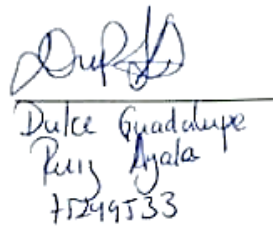 Dulce Guadalupe
Ruiz Ayala
75299533